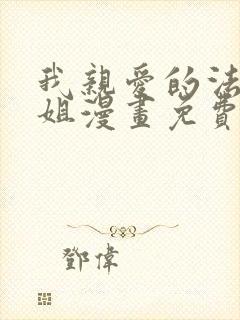 我親愛的法
姐漫畫免費
鄧偉